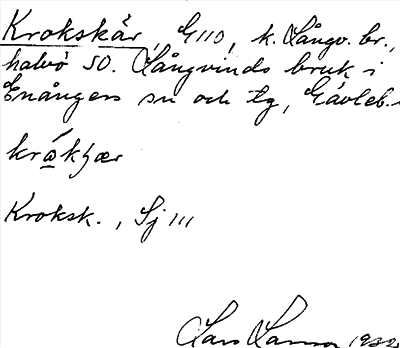 Krokskär, G110, k. Långv. br.,
halvö SO. Långvinds bruk i
Enångers sn och tg, Gävleb.
kråkʃær
Kroksk., Sj 111
Lars